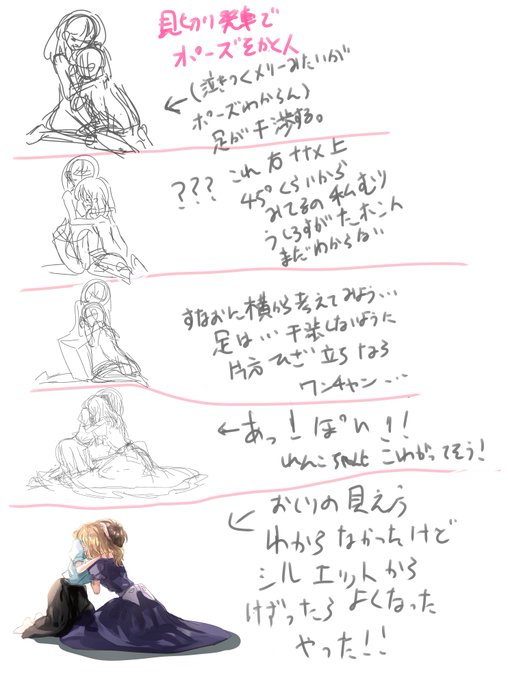 見切り発車で
ポーズをかく人
←(泣きつくメリーみたいが
ポーズわからん)
足が干渉する。
??? これ 右ナナメ上
45°くらいから
みてるの 私むり
うしろすがた ホント
まだわからない
すなおに横から考えてみよう…
足は… 干渉しないように
片方 ひざ 立ち なら
ワンチャン…
←あっ!ぽい!!
こわがってそう!
← おしりの見えろ
わから なかったけど
シルエットから
けずったら よくなった
やった!!